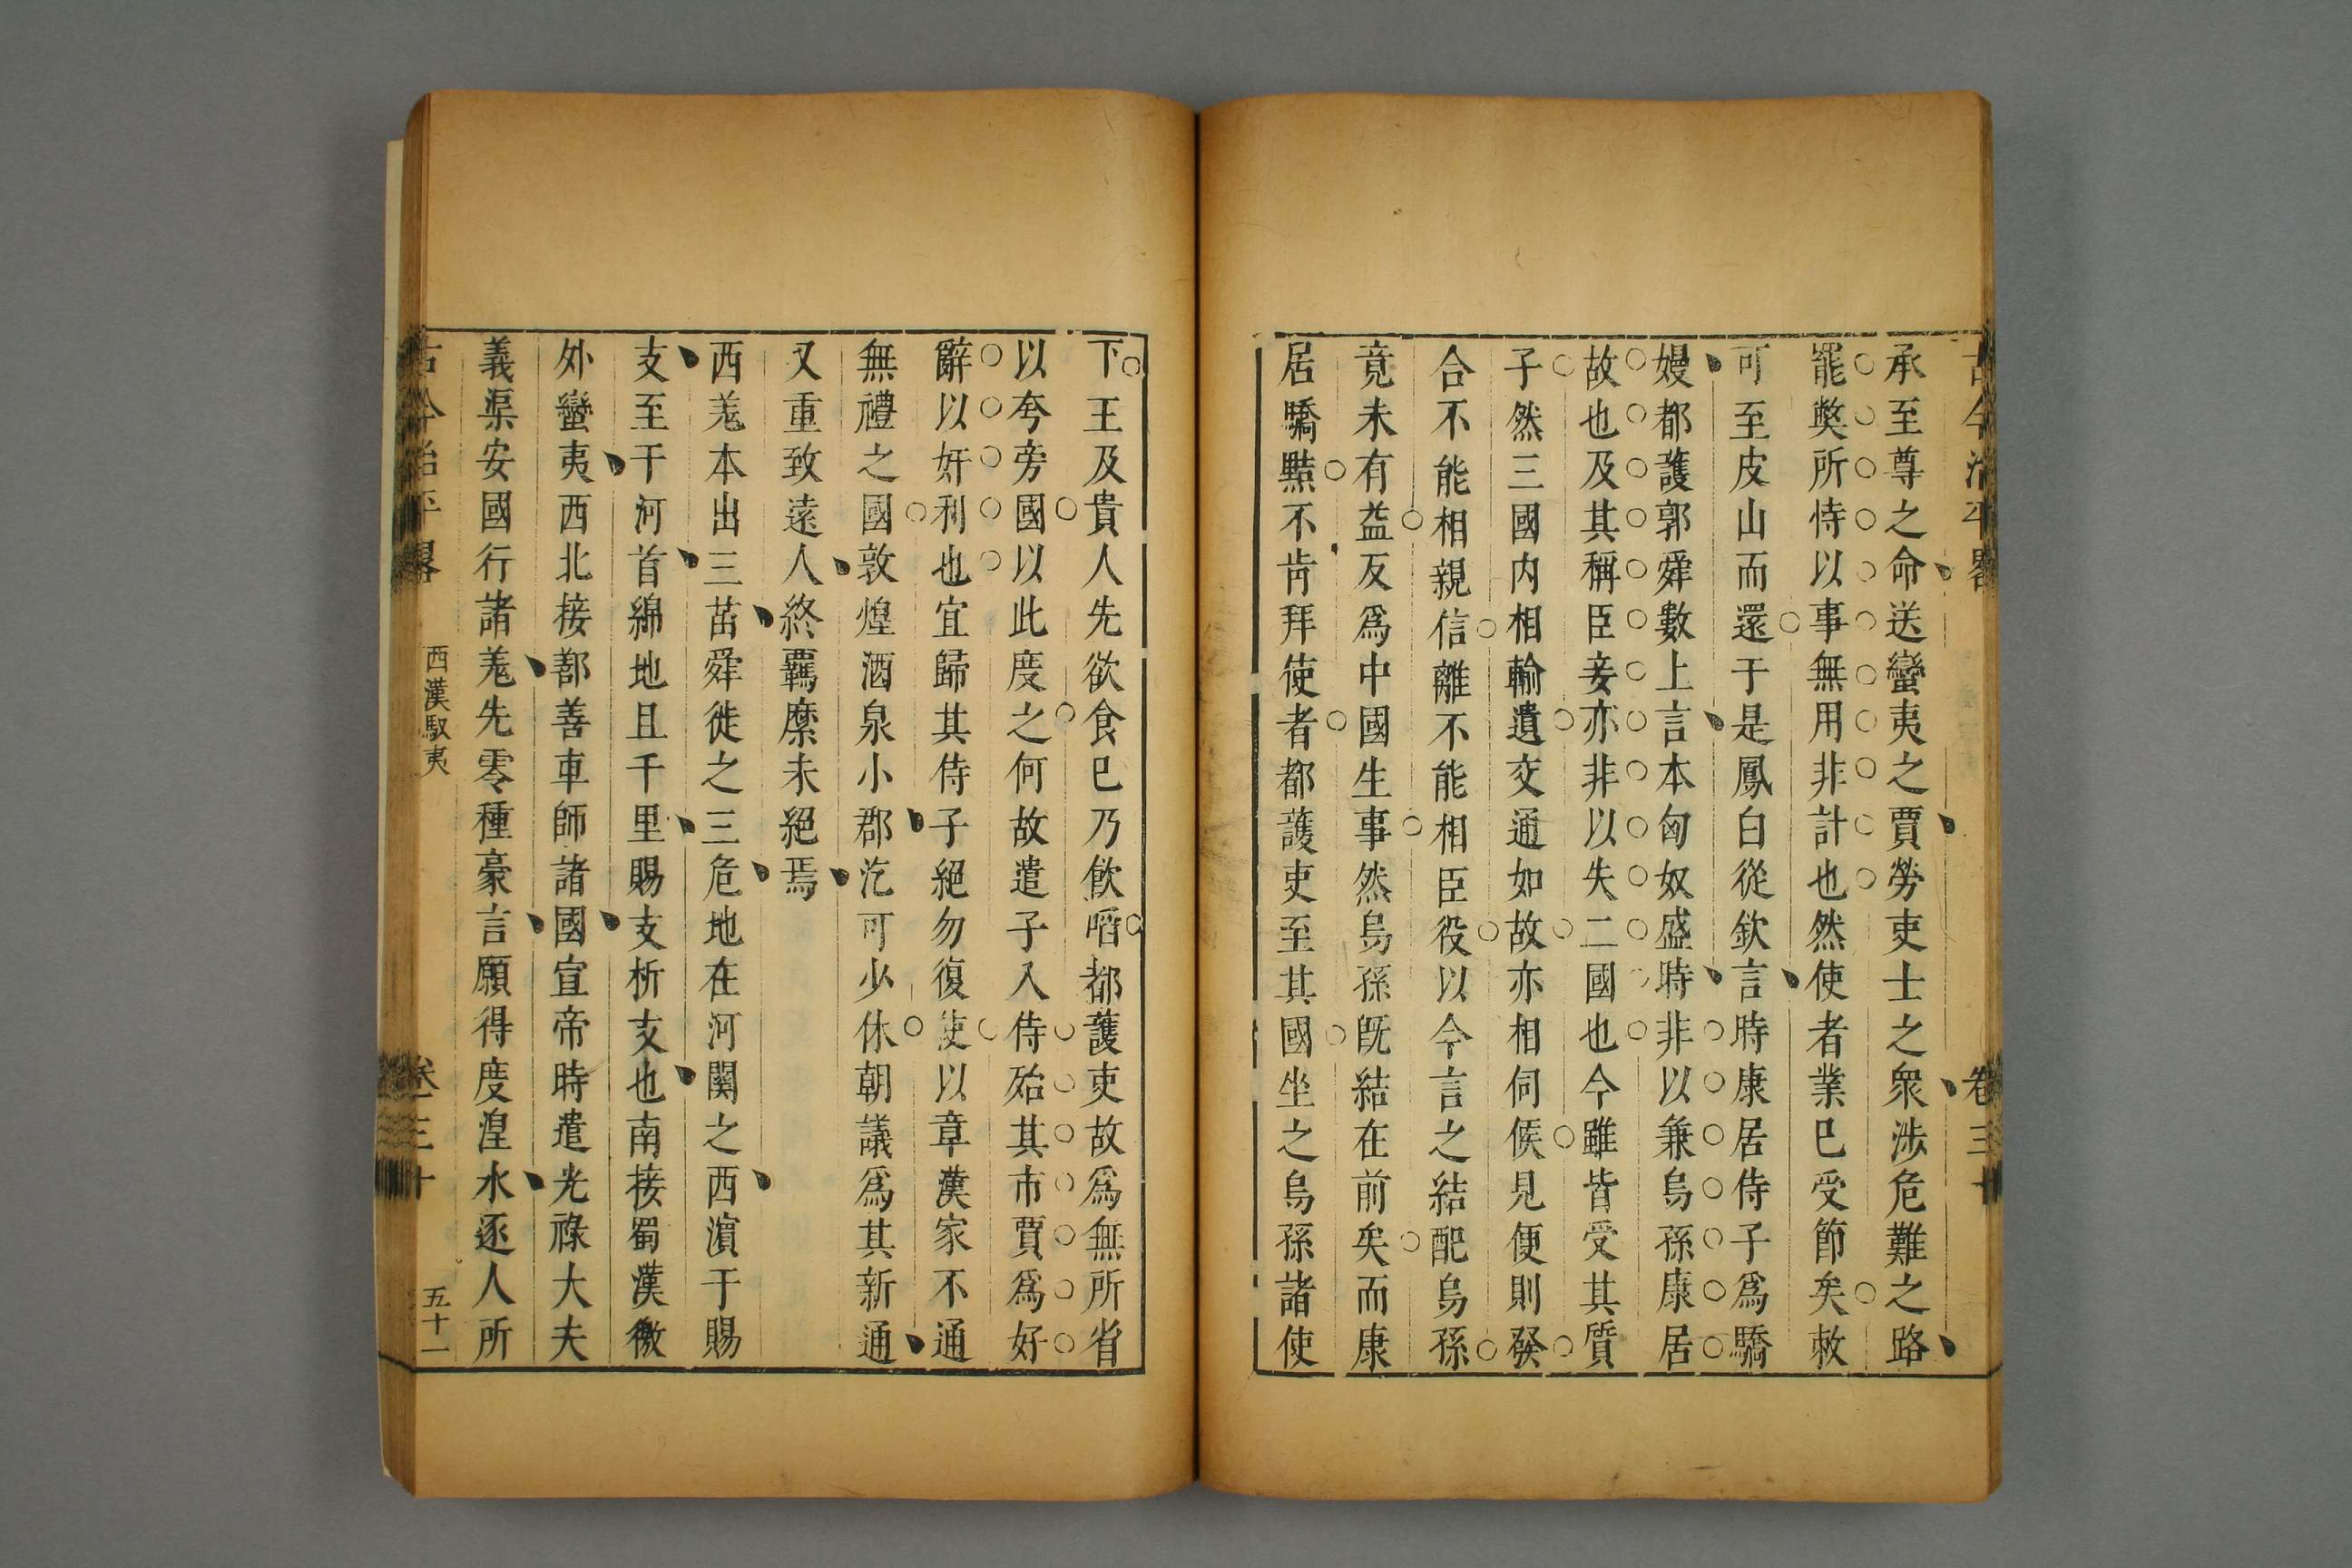 古今治平畧
卷三十
承至尊之命送蠻夷之賈勞吏士之衆涉危難之路
罷獘所恃以事無用非計也然使者業巳受節矣敕
可至皮山而還于是鳳白從欽言時康居侍子爲驕
嫚都護郭舜數上言本匈奴盛時非以兼烏孫康居
故也及其稱臣妾亦非以失二國也今雖皆受其質
子然三國内相輸遺交通如故亦相伺候見便則發
合不能相親信離不能相臣役以今言之結配烏孫
竟未有益反爲中國生事然烏孫旣結在前矣而康
居驕黠不肯拜使者都護吏至其國坐之烏孫諸使
下王及貴人先欲食巳乃飲㗖都護吏故爲無所省
以夸旁國以此度之何故遣子入侍殆其市賈爲好
辭以奸利也宜歸其侍子絕勿復使以章漢家不通
無禮之國敦煌酒泉小郡汔可少休朝議爲其新通
又重致遠人終羈縻未絕焉
西羗本出三苗舜徙之三危地在河関之西濵于賜
支至于河首綿地且千里賜支析支也南接蜀漢徼
外蠻夷西北接鄯善車師諸國宣帝時遣光祿大夫
義渠安國行諸羗先零種豪言願得度湟水逐人所
古今治平畧
西漢馭夷
卷三十
五十一